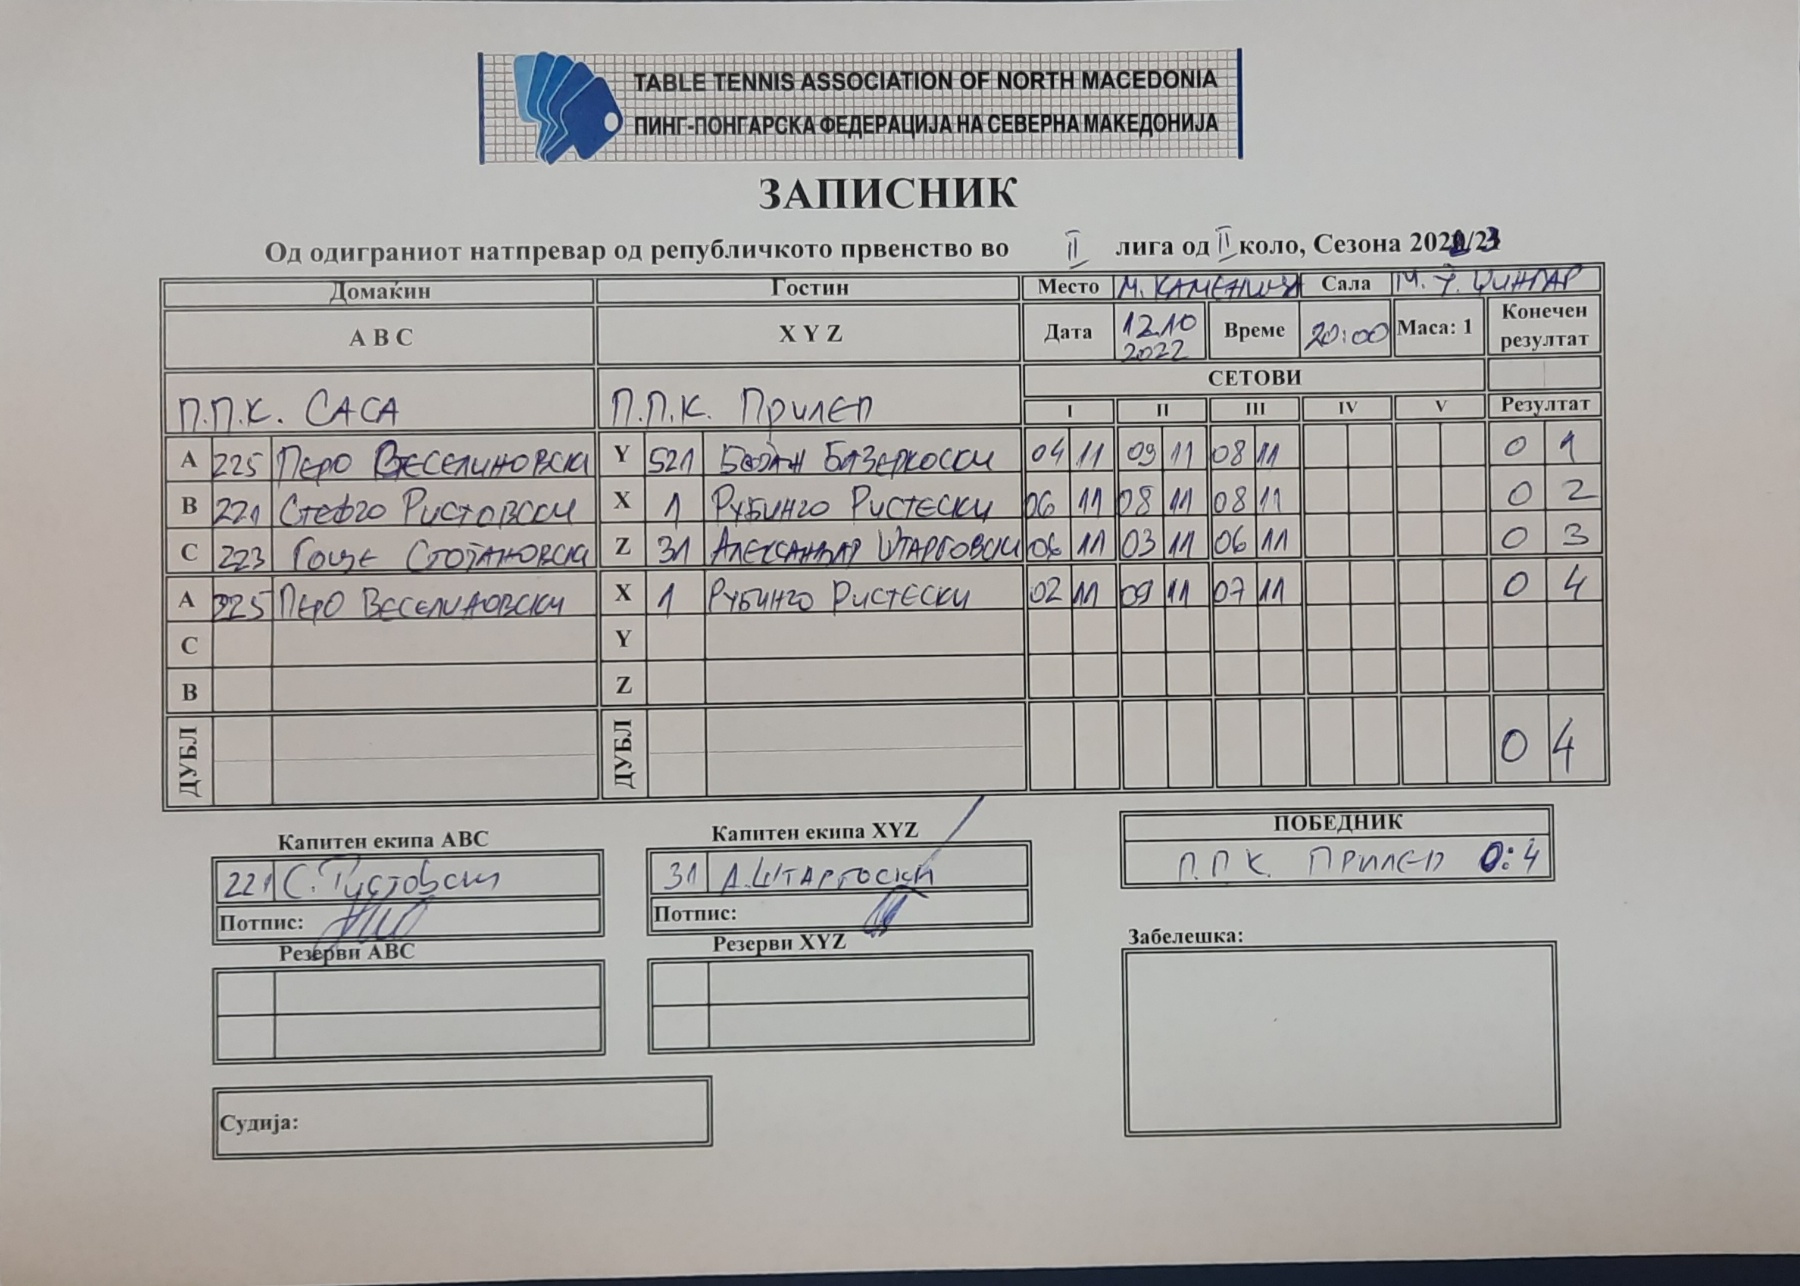 TABLE TENNIS ASSOCIATION OF NORTH MACEDONIA
ПИНГ-ПОНГАРСКА ФЕДЕРАЦИЈА НА СЕВЕРНА МАКЕДОНИЈА
ЗАПИСНИК
Од одиграниот натпревар од републичкото првенство во II лига од II коло, Сезона 2022/23
Домаќин Гостин Место М. КАМЕНИЦА Сала М. Ј. ЏИНГАР
A B C X Y Z Дата 12.10 2022 Време 20:00 Маса: 1 Конечен резултат
П.П.К. САСА П.П.К. ПРИЛЕП СЕТОВИ
I II III IV V Резултат
A 225 ПЕРО ВЕСЕЛИНОВСКИ Y 521 БОЈАН БАЗЕРКОСКИ 04 11 09 11 08 11 0 1
B 221 СТЕФЧО РИСТОВСКИ X 1 РУБИНЧО РИСТЕСКИ 06 11 08 11 08 11 0 2
C 223 ГОЦЕ СТОЈАНОВСКИ Z 31 АЛЕКСАНДАР ШТАРГОВСКИ 06 11 03 11 06 11 0 3
A 225 ПЕРО ВЕСЕЛИНОВСКИ X 1 РУБИНЧО РИСТЕСКИ 02 11 09 11 07 11 0 4
C Y
B Z
ДУБЛ ДУБЛ 0 4
Капитен екипа ABC Капитен екипа XYZ ПОБЕДНИК
221 С. Ристовски 31 А. ШТАРГОСКИ П.П.К. ПРИЛЕП 0:4
Потпис: Потпис:
Резерви ABC Резерви XYZ Забелешка:
Судија: